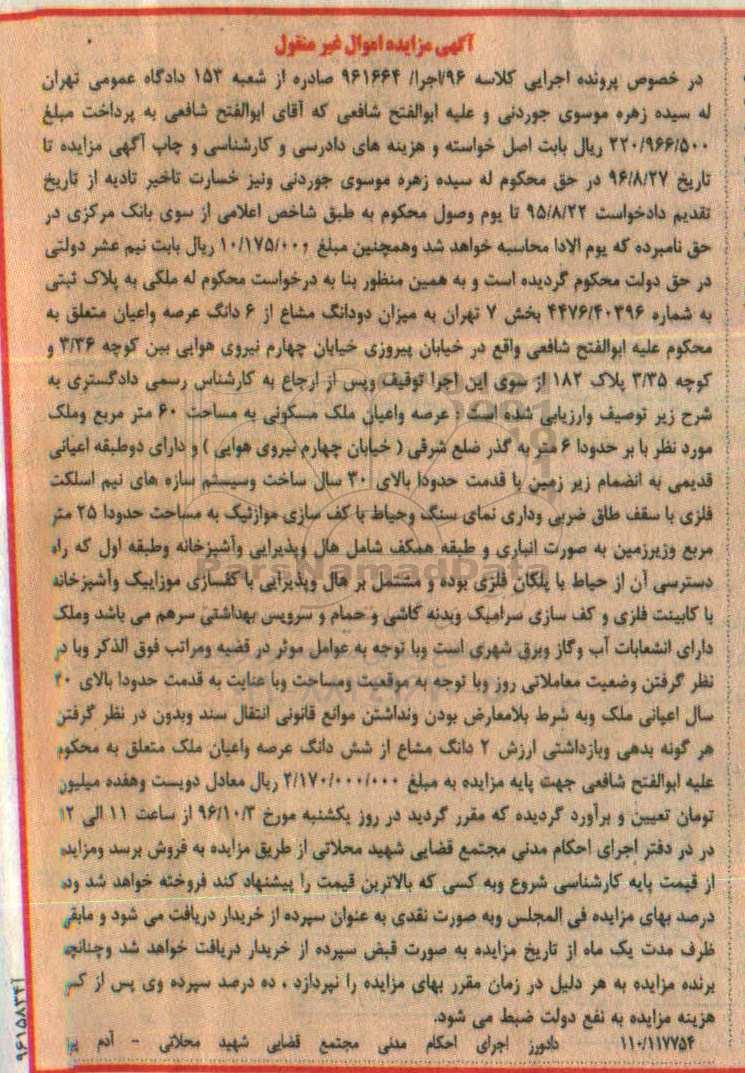 آگهی مزایده اموال غیر منقول
در خصوص پرونده اجرایی کلاسه ۹۶/اجرا/ ۹۶۱۶۶۴ صادره از شعبه ۱۵۳ دادگاه عمومی تهران
له سیده زهره موسوی جوردنی و علیه ابوالفتح شافعی که آقای ابوالفتح شافعی به پرداخت مبلغ
۲۲۰/۹۶۶/۵۰۰ ریال بابت اصل خواسته و هزینه های دادرسی و کارشناسی و چاپ آگهی مزایده تا
تاریخ ۹۶/۸/۲۷ در حق محکوم له سیده زهره موسوی جوردنی ونیز خسارت تاخیر تادیه از تاریخ
تقدیم دادخواست ۹۵/۸/۲۲ تا یوم وصول محکوم به طبق شاخص اعلامی از سوی بانک مرکزی در
حق نامبرده که یوم الادا محاسبه خواهد شد وهمچنین مبلغ ۱۰/۱۷۵/۰۰۰ ریال بابت نیم عشر دولتی
در حق دولت محکوم گردیده است و به همین منظور بنا به درخواست محکوم له ملکی به پلاک ثبتی
به شماره ۴۴۷۶/۴۰۳۹۶ بخش ۷ تهران به میزان دودانگ مشاع از ۶ دانگ عرصه واعیان متعلق به
محکوم علیه ابوالفتح شافعی واقع در خیابان پیروزی خیابان چهارم نیروی هوایی بین کوچه ۳/۳۶ و
کوچه ۳/۳۵ پلاک ۱۸۲ از سوی این اجرا توقیف وپس از ارجاع به کارشناس رسمی دادگستری به
شرح زیر توصیف وارزیابی شده است : عرصه واعیان ملک مسکونی به مساحت ۶۰ متر مربع وملک
مورد نظر با بر حدودا ۶ متر به گذر ضلع شرقی ( خیابان چهارم نیروی هوایی ) و دارای دوطبقه اعیانی
قدیمی به انضمام زیر زمین با قدمت حدودا بالای ۳۰ سال ساخت وسیستم سازه های نیم اسلکت
فلزی با سقف طاق ضربی وداری نمای سنگ وحیاط با کف سازی موازئیک به مساحت حدودا ۲۵ متر
مربع وزیرزمین به صورت انباری و طبقه همکف شامل هال وپذیرایی وآشپزخانه وطبقه اول که راه
دسترسی آن از حیاط با پلکان فلزی بوده و مشتمل بر هال وپذیرایی با کفسازی موزاییک وآشپزخانه
با کابینت فلزی و کف سازی سرامیک وبدنه کاشی و حمام و سرویس بهداشتی سرهم می باشد وملک
دارای انشعابات آب وگاز وبرق شهری است وبا توجه به عوامل موثر در قضیه ومراتب فوق الذکر وبا در
نظر گرفتن وضعیت معاملاتی روز وبا توجه به موقعیت ومساحت وبا عنایت به قدمت حدودا بالای ۲۰
سال اعیانی ملک وبه شرط بلامعارض بودن ونداشتن موانع قانونی انتقال سند وبدون در نظر گرفتن
هر گونه بدهی وبازداشتی ارزش ۲ دانگ مشاع از شش دانگ عرصه واعیان ملک متعلق به محکوم
علیه ابوالفتح شافعی جهت پایه مزایده به مبلغ ۲/۱۷۰/۰۰۰/۰۰۰ ریال معادل دویست وهفده میلیون
تومان تعیین و برآورد گردیده که مقرر گردید در روز یکشنبه مورخ ۹۶/۱۰/۳ از ساعت ۱۱ الی ۱۲
در در دفتر اجرای احکام مدنی مجتمع قضایی شهید محلاتی از طریق مزایده به فروش برسد ومزایده
از قیمت پایه کارشناسی شروع وبه کسی که بالاترین قیمت را پیشنهاد کند فروخته خواهد شد وده
درصد بهای مزایده فی المجلس وبه صورت نقدی به عنوان سپرده از خریدار دریافت می شود و مابقی
ظرف مدت یک ماه از تاریخ مزایده به صورت قبض سپرده از خریدار دریافت خواهد شد وچنانچه
برنده مزایده به هر دلیل در زمان مقرر بهای مزایده را نپردازد ، ده درصد سپرده وی پس از کسر
هزینه مزایده به نفع دولت ضبط می شود.
۱۱۰/۱۱۷۷۵۴ دادورز اجرای احکام مدنی مجتمع قضایی شهید محلاتی - آدم
۹۶۱۵۸۳۴آ
ParsNamadData